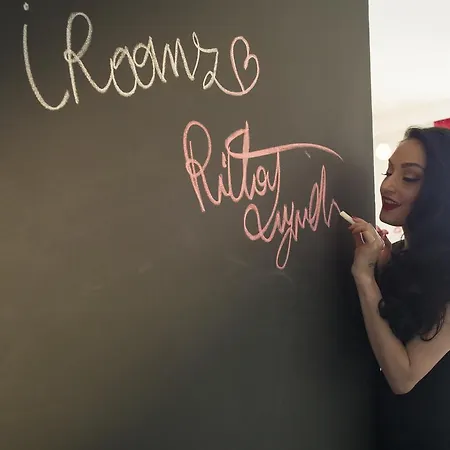 iRooms
Rita
Lynch